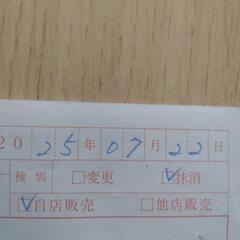 2025年07月22日
種別 □変更 ☑抹消
☑自店販売 □他店販売